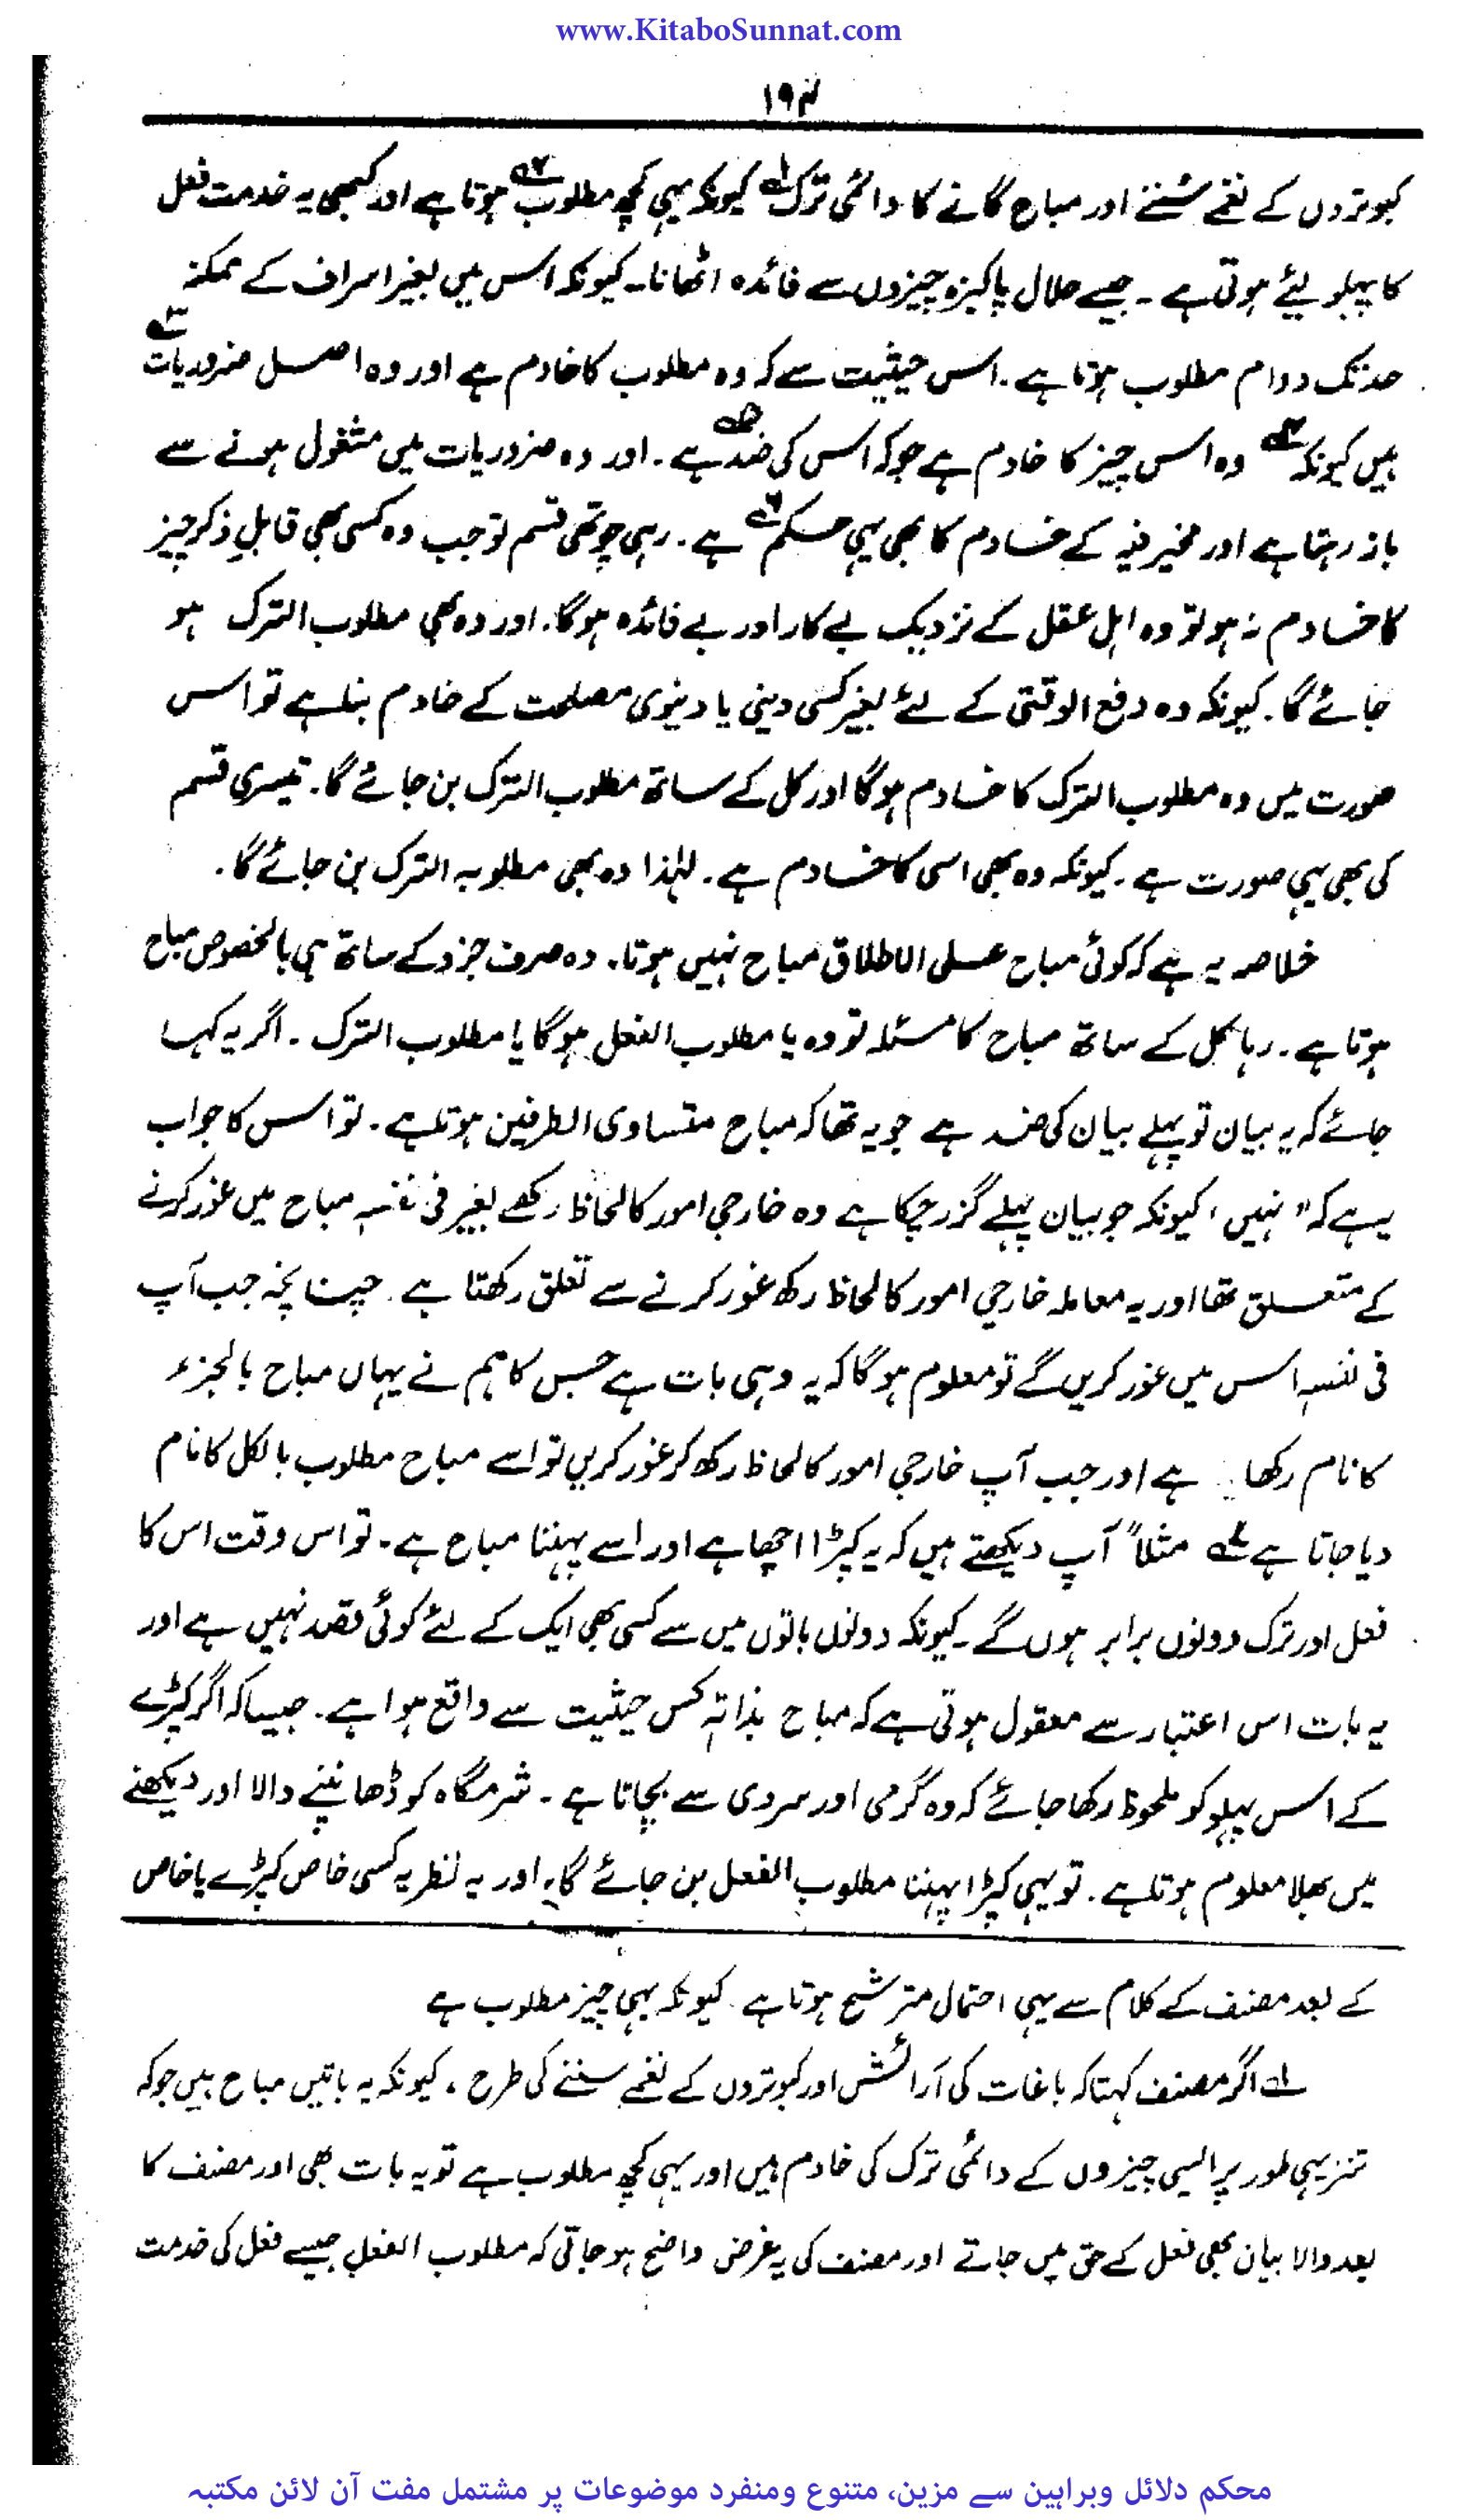 www.KitaboSunnat.com
۱۹۴
کبوتروں کے نغمے سُننے اور مباح گانے کا دائمی ترک لہ کیونکہ یہی کچھ مطلوب ۲ہ ہوتا ہے اور کبھی یہ خدمت فعل
کا پہلو لیئے ہوتی ہے ۔ جیسے حلال پاکیزہ چیزوں سے فائدہ اٹھانا۔ کیونکہ اس میں بغیر اسراف کے ممکنہ
حد تک دوام مطلوب ہوتا ہے ۔ اس حیثیت سے کہ وہ مطلوب کا خادم ہے اور وہ اصل ضروریات ۳ہ
ہیں کیونکہ ۴ہ وہ اس چیز کا خادم ہے جو کہ اس کی ضد ۵ہ ہے ۔ اور وہ ضروریات میں مشغول ہونے سے
باز رہتا ہے اور مخیر فیہ کے خادم کا بھی یہی حکم ۶ہ ہے ۔ رہی چوتھی قسم تو جب وہ کسی بھی قابلِ ذکر چیز
کا خادم نہ ہو تو وہ اہل عقل کے نزدیک بے کار اور بے فائدہ ہوگا۔ اور وہ بھی مطلوب الترک ہو
جائے گا ۔ کیونکہ وہ دفع الوقتی کے لئے بغیر کسی دینی یا دنیوی مصلحت کے خادم بنا ہے تو اس
صورت میں وہ مطلوب الترک کا خادم ہوگا اور کل کے ساتھ مطلوب الترک بن جائے گا ۔ تیسری قسم
کی بھی یہی صورت ہے ۔ کیونکہ وہ بھی اسی کا خادم ہے ۔ لہٰذا وہ بھی مطلوبہ الترک بن جائے گا ۔
خلاصہ یہ ہے کہ کوئی مباح علی الاطلاق مباح نہیں ہوتا ۔ وہ صرف جزو کے ساتھ ہی بالخصوص مباح
ہوتا ہے ۔ رہا کل کے ساتھ مباح کا مسئلہ تو وہ یا مطلوب الفعل ہوگا یا مطلوب الترک ۔ اگر یہ کہا
جائے کہ یہ بیان تو پہلے بیان کی ضد ہے جو یہ تھا کہ مباح متساوی الطرفین ہوتا ہے ۔ تو اس کا جواب
یہ ہے کہ " نہیں ، کیونکہ جو بیان پہلے گزر چکا ہے وہ خارجی امور کا لحاظ رکھے بغیر فی نفسہٖ مباح میں غور کرنے
کے متعلق تھا اور یہ معاملہ خارجی امور کا لحاظ رکھ غور کرنے سے تعلق رکھتا ہے ۔ چنانچہ جب آپ
فی نفسہٖ اس میں غور کریں گے تو معلوم ہوگا کہ یہ وہی بات ہے جس کا ہم نے یہاں مباح بالجزء
کا نام رکھا ہے اور جب آپ خارجی امور کا لحاظ رکھ کر غور کریں تو اسے مباح مطلوب بالکل کا نام
دیا جاتا ہے ۷ہ مثلاً آپ دیکھتے ہیں کہ یہ کپڑا اچھا ہے اور اسے پہننا مباح ہے ۔ تو اس وقت اس کا
فعل اور ترک دونوں برابر ہوں گے ۔ کیونکہ دونوں باتوں میں سے کسی بھی ایک کے لئے کوئی قصد نہیں ہے اور
یہ بات اس اعتبار سے معقول ہوتی ہے کہ مباح بذاتہٖ کس حیثیت سے واقع ہوا ہے ۔ جیسا کہ اگر کپڑے
کے اس پہلو کو ملحوظ رکھا جائے کہ وہ گرمی اور سردی سے بچاتا ہے ۔ شرمگاہ کو ڈھانپنے والا اور دیکھنے
میں بھلا معلوم ہوتا ہے ۔ تو یہی کپڑا پہننا مطلوب الفعل بن جائے گا ۔ اور یہ نظریہ کسی خاص کپڑے یا خاص
کے بعد مصنف کے کلام سے یہی احتمال مترشح ہوتا ہے ۔ کیونکہ یہی چیز مطلوب ہے
لہ اگر مصنف کہتا کہ باغات کی آرائش اور کبوتروں کے نغمے سننے کی طرح ، کیونکہ یہ باتیں مباح ہیں جو کہ
تنزیہی طور پر ایسی چیزوں کے دائمی ترک کی خادم ہیں اور یہی کچھ مطلوب ہے تو یہ بات بھی اور مصنف کا
بعد والا بیان بھی فعل کے حق میں جاتے اور مصنف کی یہ غرض واضح ہو جاتی کہ مطلوب الفعل جیسے فعل کی خدمت
محکم دلائل وبراہین سے مزین، متنوع ومنفرد موضوعات پر مشتمل مفت آن لائن مکتبہ